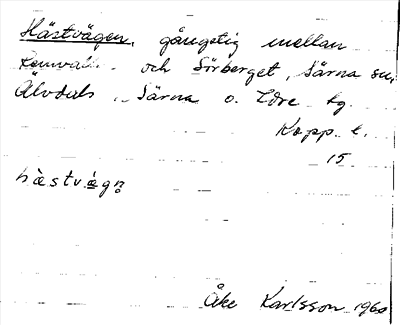 Hästvägen, gångstig mellan
och Sörberget, Särna sn,
Älvdals, Särna o. Idre tg.
Kopp. l.
15
hästvägn̥
Åke Karlsson 1960